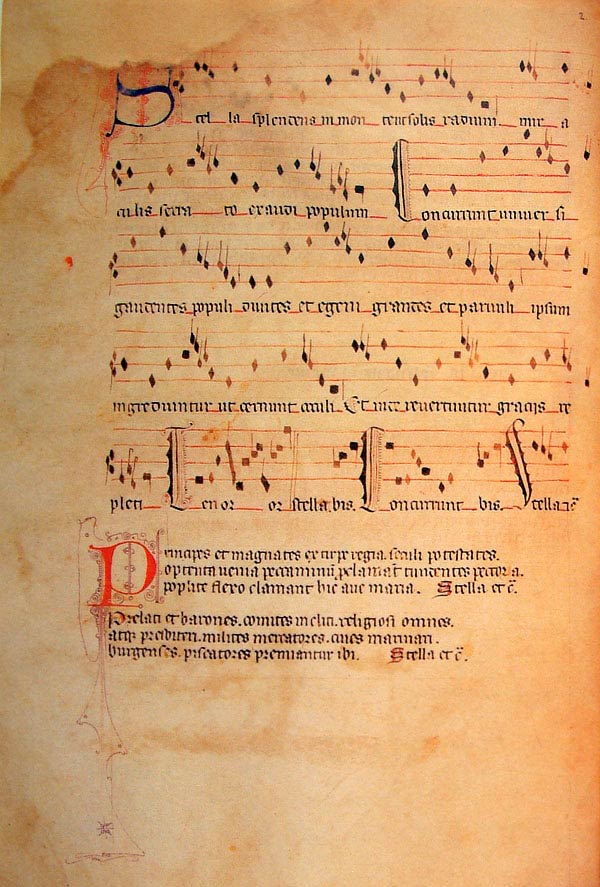 2
Stel la splendens in mon te ut solis radium mir a
culis serra to exaudi populum Concurrunt univer si
gaudentes populi divites et egeni grandes et parvuli ipsum
ingrediuntur ut cernunt oculi Et inde revertuntur graciis re
pleti Tenor or stella bis. Concurrunt bis. Stella
Principes et magnates ex stirpe regia. seculi potestates.
optenta venia peccaminum proclamant tundentes pectora.
poplite flexo clamant hic ave maria. Stella et c.
Prelati et barones. comites incliti. religiosi omnes.
atque presbiteri. milites mercatores. cives marinari.
burgenses. piscatores premiantur ibi. Stella et c.